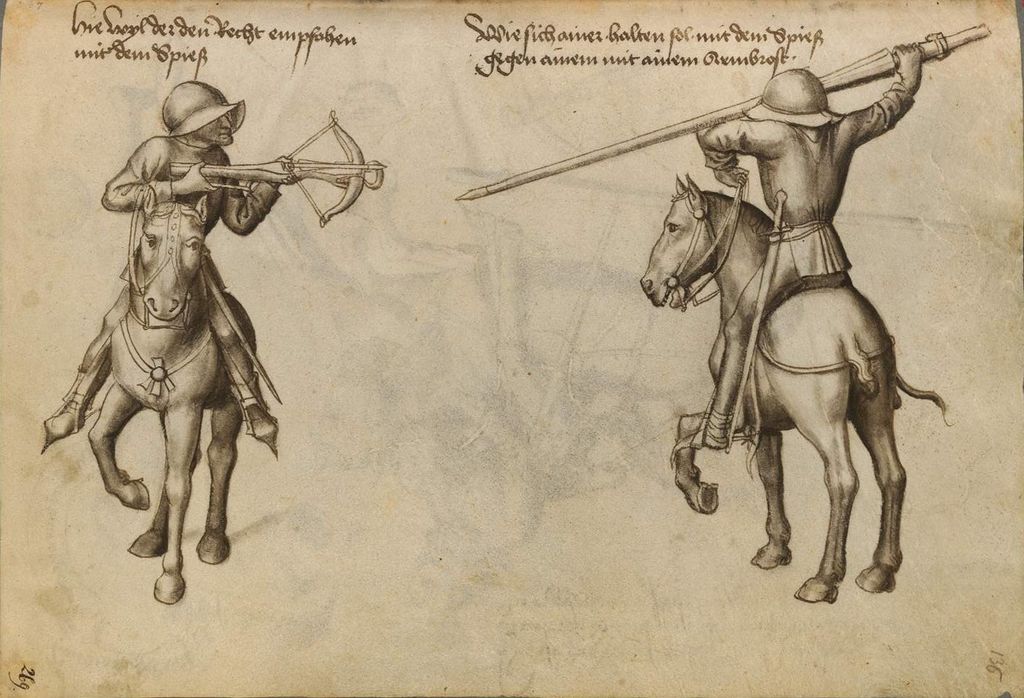 Hie wyl der den Recht empfahen
mit dem Spieß
Wie sich ainer halten sol mit dem Spieß
gegen ainem mit ainem Armbrost.
269
136